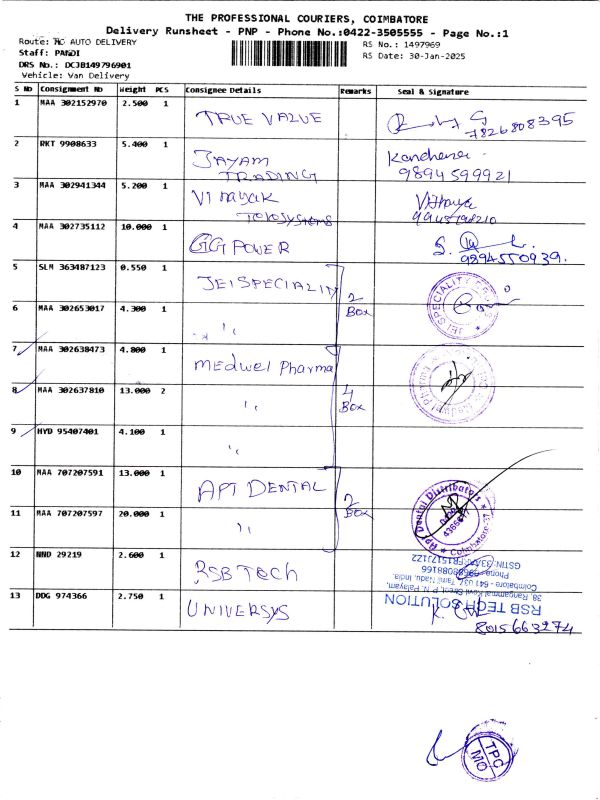 THE PROFESSIONAL COURIERS, COIMBATORE
Delivery Runsheet - PNP - Phone No.:0422-3505555 - Page No.:1
Route: AUTO DELIVERY
RS No.: 1497969
Staff: PANDI
RS Date: 30-Jan-2025
DRS No.: DCJB149796901
Vehicle: Van Delivery
S No Consignment No Weight PCS Consignee Details Remarks Seal & Signature
1 MAA 302152970 2.500 1 TRUE VALUE 7826808395
2 RKT 9908633 5.400 1 JAYAM TRADING Kanchana 9894599921
3 MAA 302941344 5.200 1 Vinayak
4 MAA 302735112 10.000 1 GG POWER 9894550939.
5 SLM 363487123 0.550 1 JEI SPECIALITY 2 Box
6 MAA 302653017 4.300 1 "
7 MAA 302638473 4.800 1 Medwel Pharma 4 Box
8 MAA 302637810 13.000 2 "
9 HYD 95407401 4.100 1 "
10 MAA 707207591 13.000 1 APT DENTAL 2 Box
11 MAA 707207597 20.000 1 "
Dental Distributors
Coimbatore-37
12 NND 29219 2.600 1 RSB Tech
13 DDG 974366 2.750 1 UNIVERSYS
RSB TECH SOLUTION
Coimbatore - 641 037, Tamil Nadu, India.
8015663274
TPC
MO